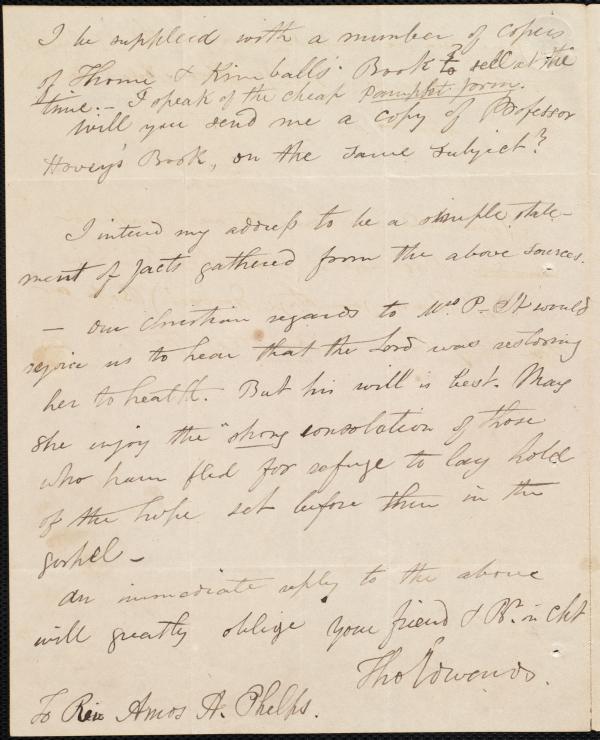 I be supplied with a number of copies
of Thome & Kimball's Book? to sell at the
time. – I speak of the cheap pamphlet form.
Will you send me a copy of Professor
Hovey's Book, on the same subject?
I intend my address to be a simple state-
ment of facts gathered from the above sources.
— Our Christian regards to Mrs P– It would
rejoice us to hear that the Lord was restoring
her to health. But his will is best. May
she enjoy the "strong consolation of those
who have fled for refuge to lay hold
of the hope set before them in the
gospel –
An immediate reply to the above
will greatly oblige your friend & Br. in Cht
Tho Edwards.
To Rev Amos A. Phelps.